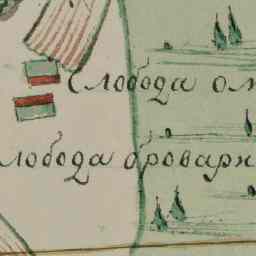 Слобода ом
лобода броварн